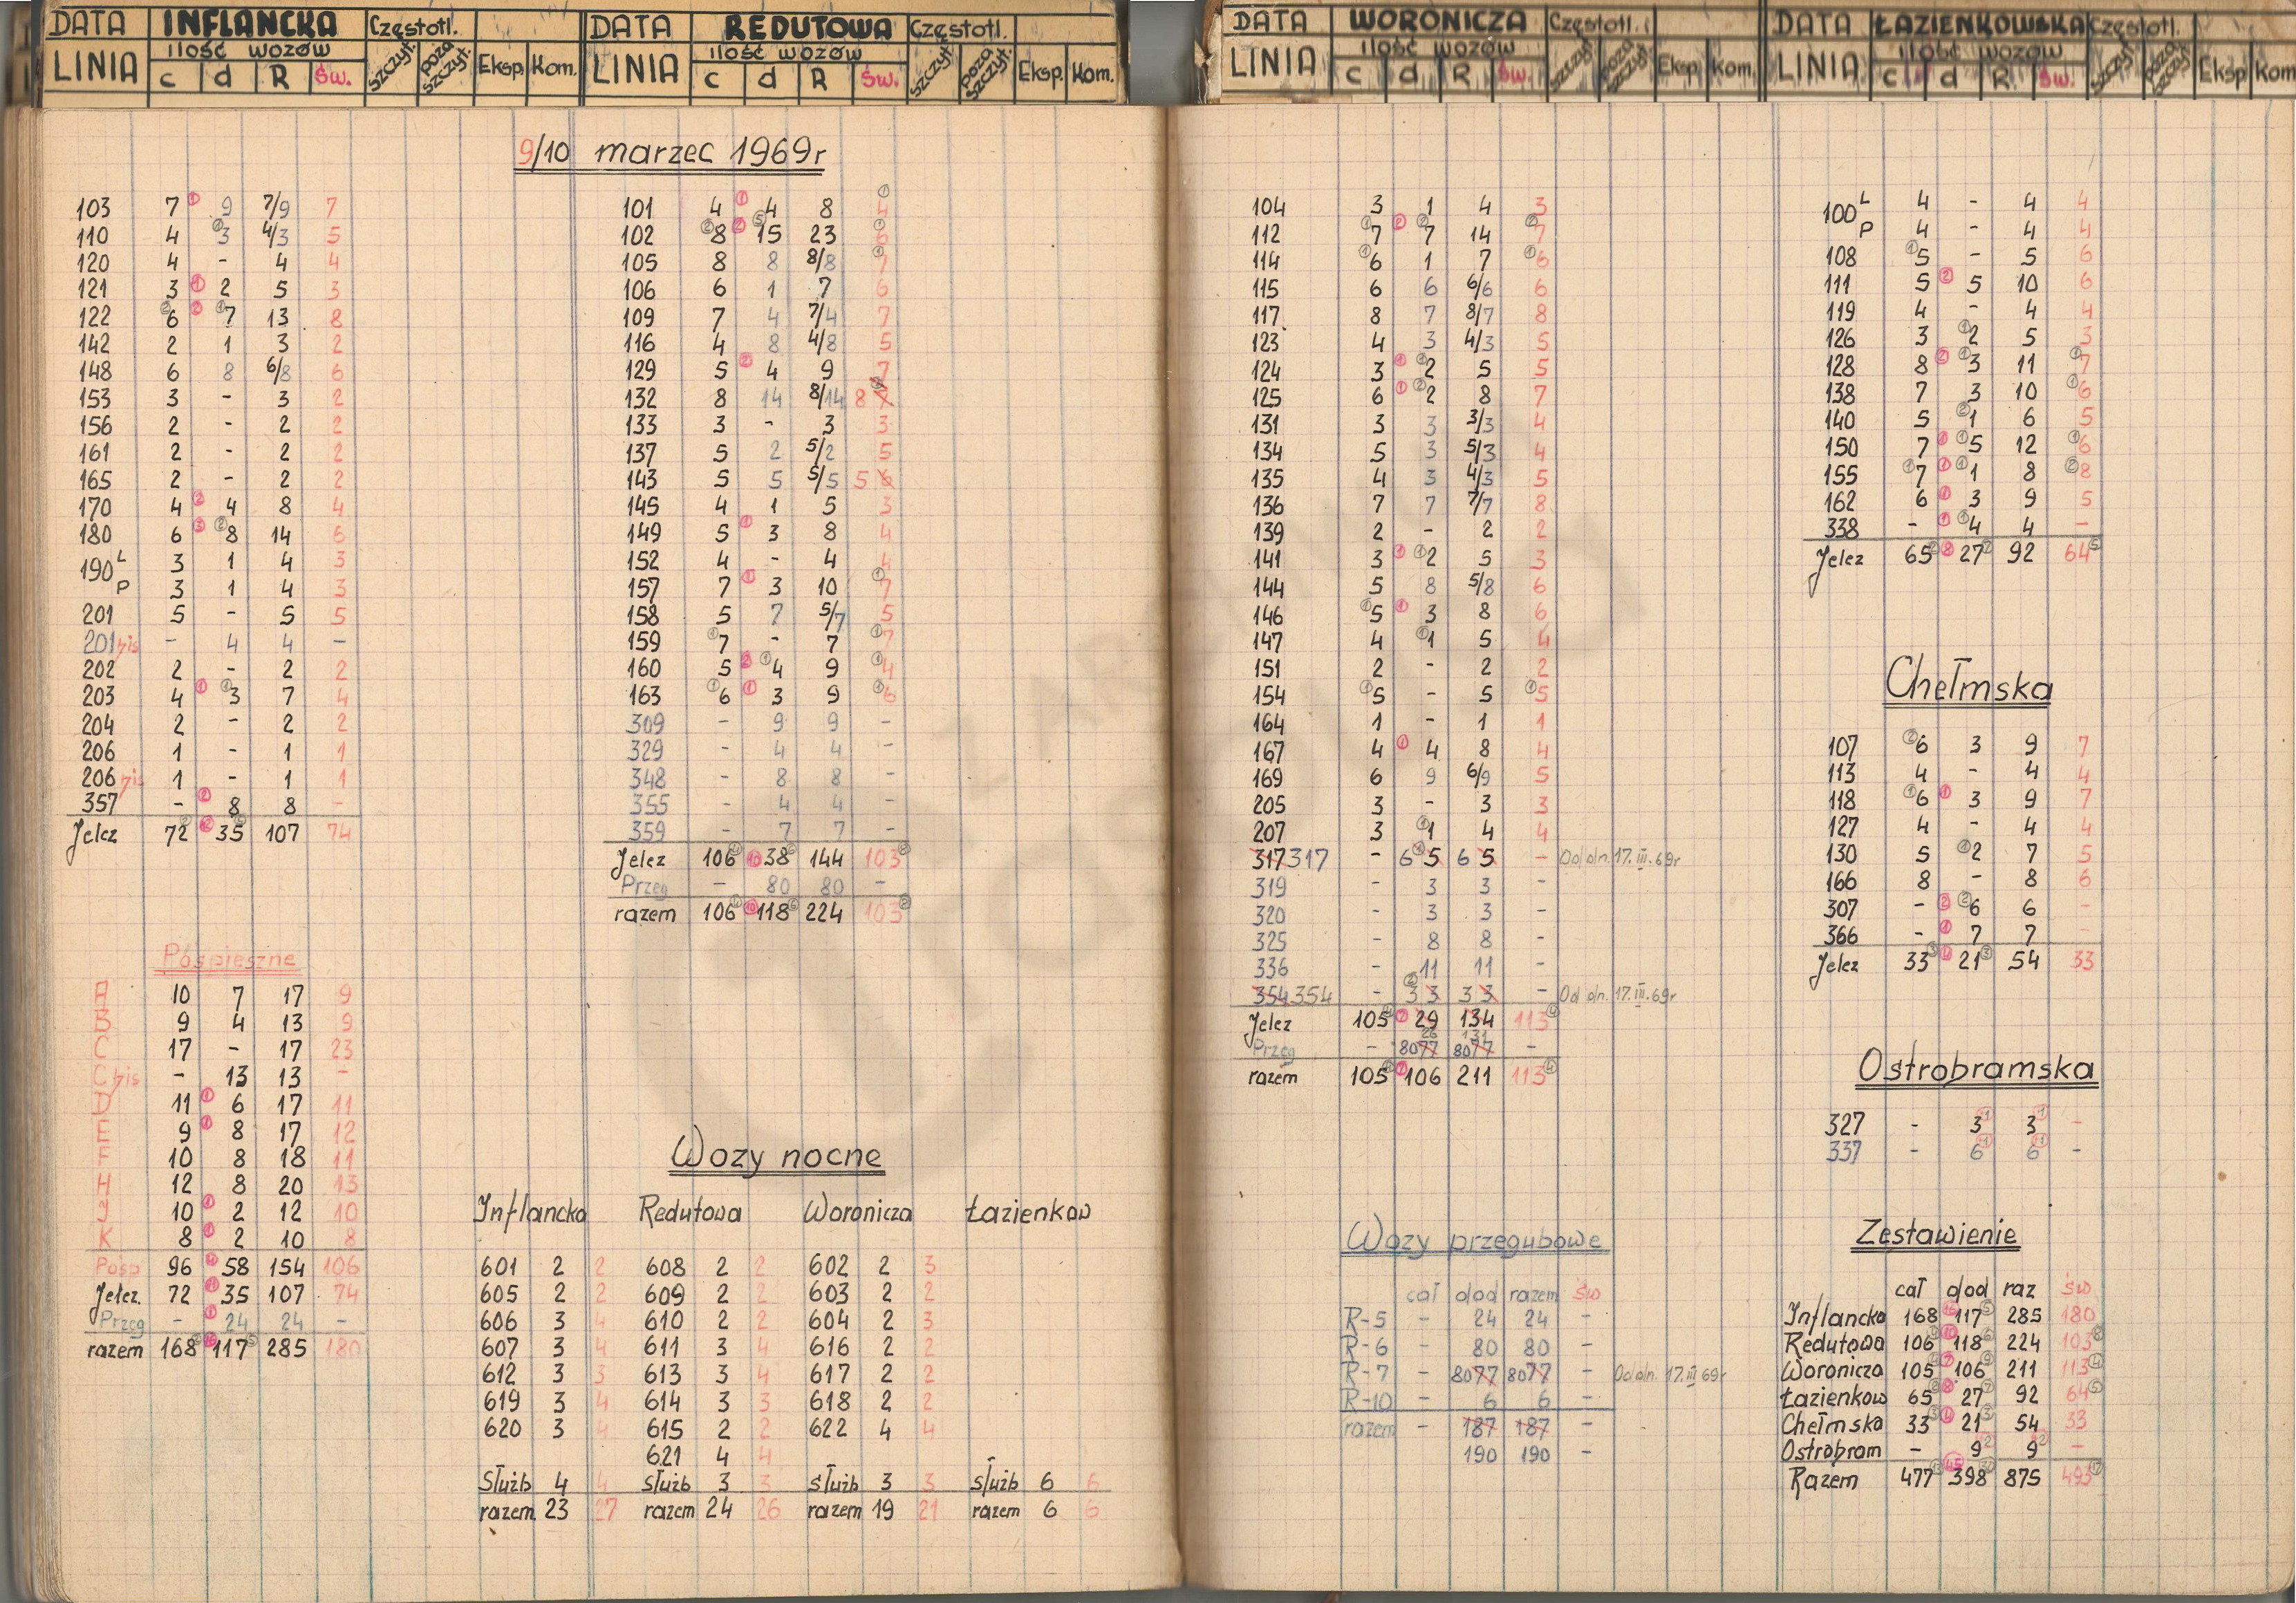 DATA INFLANCKA Częstotl.
LINIA ilość wozów szczyt. poza szczyt. Eksp. Kom.
c d R św.
DATA REDUTOWA Częstotl.
LINIA ilość wozów szczyt. poza szczyt. Eksp. Kom.
c d R św.
DATA WORONICZA Częstotl.
LINIA ilość wozów szczyt. poza szczyt. Eksp. Kom.
c d R św.
DATA ŁAZIENKOWSKA Częstotl.
LINIA ilość wozów szczyt. poza szczyt. Eksp. Kom
c d R św.
9/10 marzec 1969r
103 7 ① 9 7/9 7
110 4 ① 3 4/3 5
120 4 - 4 4
121 3 ① 2 5 3
122 ② 6 ② ① 7 13 8
142 2 1 3 2
148 6 8 6/8 6
153 3 - 3 2
156 2 - 2 2
161 2 - 2 2
165 2 - 2 2
170 4 ② 4 8 4
180 6 ③ ② 8 14 6
190 L 3 1 4 3
P 3 1 4 3
201 5 - 5 5
201 bis - 4 4 -
202 2 - 2 2
203 4 ① ① 3 7 4
204 2 - 2 2
206 1 - 1 1
206 bis 1 - 1 1
357 - ② 8 8 -
Jelcz 72 ② ⑫ 35 107 74
Pośpieszne
A 10 7 17 9
B 9 4 13 9
C 17 - 17 23
C bis - 13 13 -
D 11 ① 6 17 11
E 9 ① 8 17 12
F 10 8 18 11
H 12 8 20 13
J 10 ① 2 12 10
K 8 ① 2 10 8
Pośp 96 ④ 58 154 106
Jelcz. 72 35 107 74
Przeg - 24 24 -
razem 168 117 285 180
101 4 ① 4 8 4 ①
102 ② 8 ② ⑤ 15 23 ① 6
105 8 8 8/8 ① 7
106 6 1 7 6
109 7 4 7/4 7
116 4 8 4/8 5
129 5 ② 4 9 7
132 8 14 8/14 8
133 3 - 3 3
137 5 2 5/2 5
143 5 5 5/5 5 6
145 4 1 5 3
149 5 ① 3 8 4
152 4 - 4 4
157 7 ① 3 10 ① 7
158 5 7 5/7 5
159 ① 7 - 7 ① 7
160 5 ② ① 4 9 ① 4
163 ① 6 ① 3 9 ① 6
309 - 9 9 -
329 - 4 4 -
348 - 8 8 -
355 - 4 4 -
359 - 7 7 -
Jelcz 106 ④ ⑩ 38 ⑥ 144 103 ⑧
Przeg - 80 80 -
razem 106 ④ ⑩ 118 ⑥ 224 103 ⑧
Wozy nocne
Inflancka Redutowa Woronicza Łazienkow
601 2 2 608 2 2 602 2 3
605 2 2 609 2 2 603 2 2
606 3 4 610 2 2 604 2 3
607 3 4 611 3 4 616 2 2
612 3 3 613 3 4 617 2 2
619 3 4 614 3 3 618 2 2
620 3 4 615 2 2 622 4 4
621 4 4
Służb 4 4 służb 3 3 służb 3 3 służb 6 6
razem 23 27 razem 24 26 razem 19 21 razem 6 6
104 3 1 4 3
112 ① 7 ② ② 7 14 ② 7
114 ① 6 1 7 ① 6
115 6 6 6/6 6
117 8 7 8/7 8
123 4 3 4/3 5
124 3 ① ① 2 5 5
125 6 ① ② 2 8 7
131 3 3 3/3 4
134 5 3 5/3 4
135 4 3 4/3 5
136 7 7 7/7 8
139 2 - 2 2
141 3 ① ① 2 5 3
144 5 8 5/8 6
146 ① 5 ① 3 8 6
147 4 ① 1 5 4
151 2 - 2 2
154 ① 5 - 5 ① 5
164 1 - 1 1
167 4 ① 4 8 4
169 6 9 6/9 5
205 3 - 3 3
207 3 ① 1 4 4
317 317 - 6 ① 5 6 5 - Od dn. 17. III. 69r
319 - 3 3 -
320 - 3 3 -
325 - 8 8 -
336 - 11 11 -
354 354 - ② 3 3 3 3 - Od dn. 17. III. 69r
Jelcz 105 ④ ⑦ 29 134 113 ④
26 131
Przeg - 80 77 80 77 -
razem 105 ④ ⑦ 106 211 113 ④
Wozy przegubowe
cał dod razem św
R-5 - 24 24 -
R-6 - 80 80 -
R-7 - 80 77 80 77 - Od dn. 17. III 69r
R-10 - 6 6 -
razem - 187 187 -
190 190 -
100 L 4 - 4 4
P 4 - 4 4
108 ① 5 - 5 6
111 5 ② 5 10 6
119 4 - 4 4
126 3 ① 2 5 3
128 8 ② ① 3 11 ① 7
138 7 3 10 ① 6
140 5 ② 1 6 5
150 7 ① ① 5 12 ① 6
155 ① 7 ① ① 1 8 ② 8
162 6 ① 3 9 5
338 - ① ① 4 4 -
Jelcz 65 ② ⑧ 27 ⑦ 92 64 ⑤
Chełmska
107 ② 6 3 9 7
113 4 - 4 4
118 ① 6 ① 3 9 7
127 4 - 4 4
130 5 ① 2 7 5
166 8 - 8 6
307 - ② ② 6 6 -
366 - ① 7 7 -
Jelcz 33 ③ ④ 21 ③ 54 33
Ostrobramska
327 - 3 3 -
337 - 6 6 -
Zestawienie
cał dod raz św
Inflancka 168 117 285 180
Redutowa 106 ④ ⑩ 118 ⑥ 224 103 ⑧
Woronicza 105 ④ ⑦ 106 ⑨ 211 113 ④
Łazienkow 65 ② ⑧ 27 ⑦ 92 64 ⑤
Chełmska 33 ③ ④ 21 ③ 54 33
Ostrobram - 9 9 -
Razem 477 398 875 493